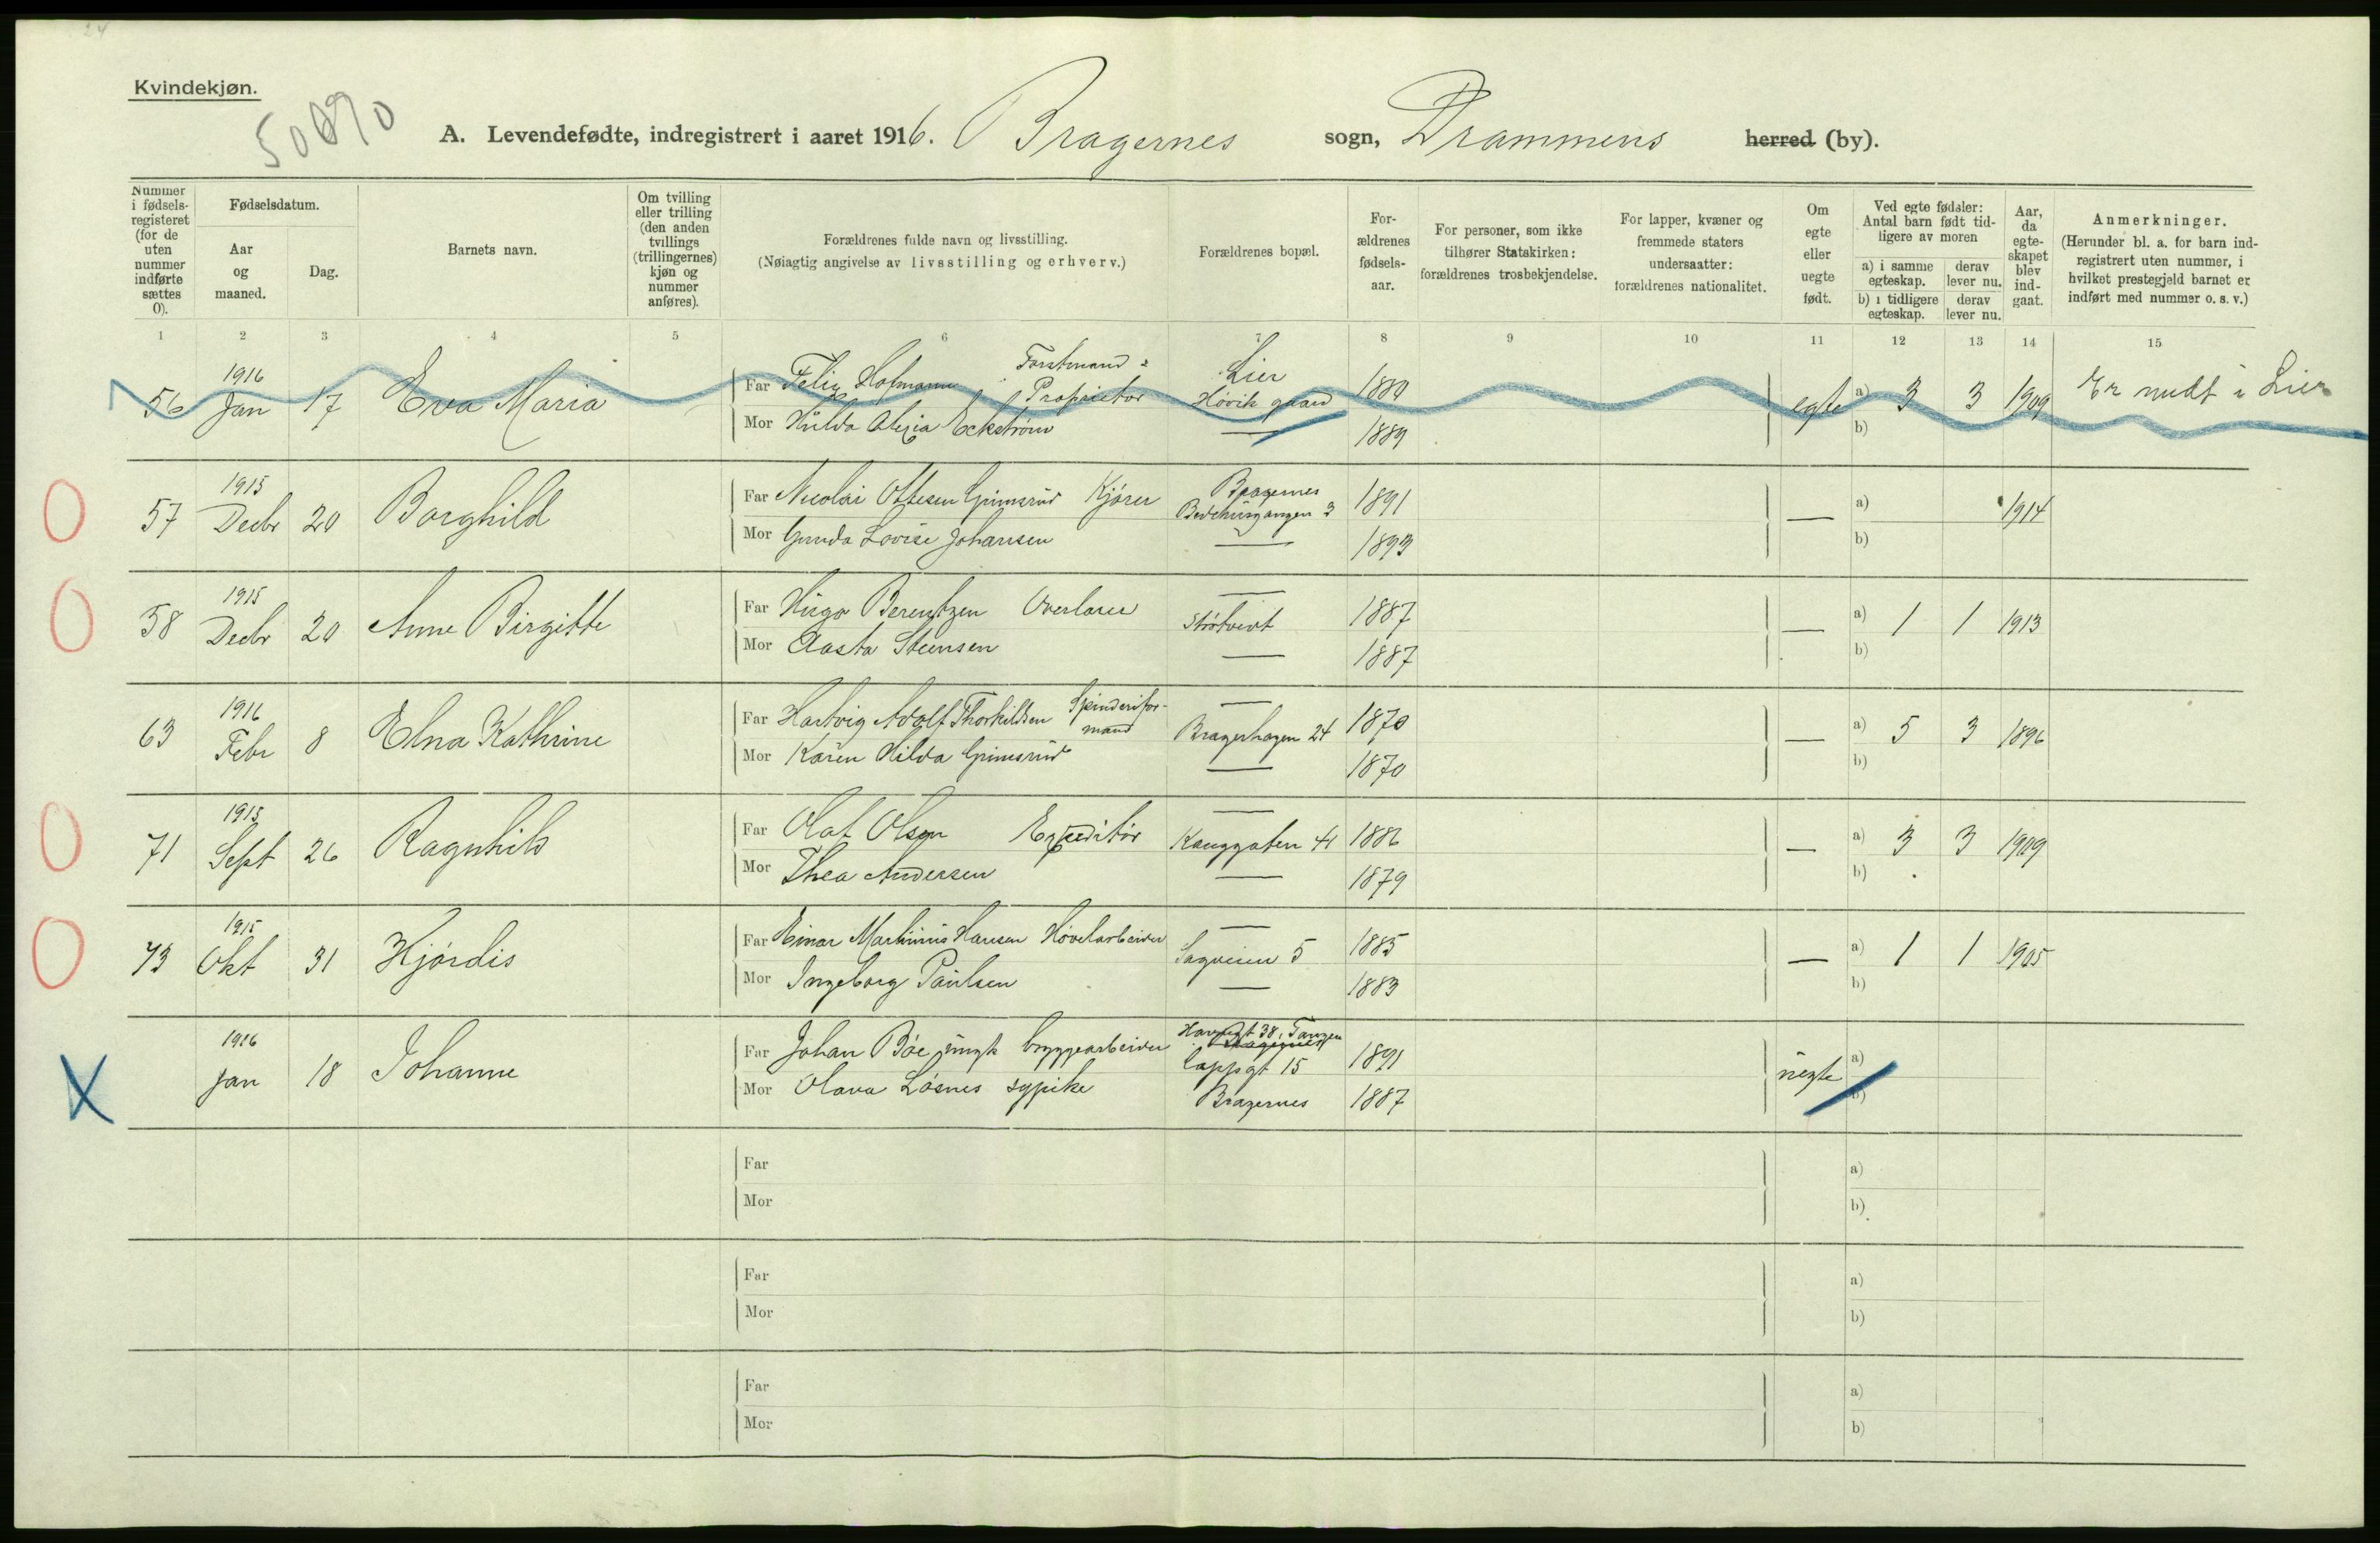 Kvindekjøn.
50890
A. Levendefødte, indregistrert i aaret 1916. Bragernes sogn, Drammens herred (by).
Nummer i fødsels-registeret (for de uten nummer indførte sættes 0).
Fødselsdatum.
Aar og maaned.
Dag.
Barnets navn.
Om tvilling eller trilling (den anden tvillings (trillingernes) kjøn og nummer anføres).
Forældrenes fulde navn og livsstilling.
(Nøiagtig angivelse av livsstilling og erhverv.)
Forældrenes bopæl.
For-ældrenes fødsels-aar.
For personer, som ikke tilhører Statskirken: forældrenes trosbekjendelse.
For lapper, kvæner og fremmede staters undersaatter: forældrenes nationalitet.
Om egte eller uegte født.
Ved egte fødsler: Antal barn født tid-ligere av moren
a) i samme egteskap. derav lever nu.
b) i tidligere egteskap. derav lever nu.
Aar, da egte-skapet blev ind-gaat.
Anmerkninger.
(Herunder bl. a. for barn ind-registrert uten nummer, i hvilket prestegjeld barnet er indført med nummer o. s. v.)
1 2 3 4 5 6 7 8 9 10 11 12 13 14 15
56 1916 Jan 17 Eva Maria
Far Felix Hofmann Forstmand & Proprietør Lier Høvik gaard 1880
Mor Hulda Alexia Eckstrøm — 1889
egte a) 3 3 1909 b) Er meldt i Lier
57 1915 Decbr 20 Borghild
Far Nicolai Ottesen Grimsrud Kjører Bragernes Bedehusgangen 3 1891
Mor Gunda Lovise Johansen — 1893
— a) 1914 b)
58 1915 Decbr 20 Anne Birgitte
Far Hugo Berentzen Overlærer — Strøtvedt 1887
Mor Aasta Steensen — 1887
— a) 1 1 1913 b)
63 1916 Febr 8 Elna Kathrine
Far Hartvig Adolf Thorkildsen Spinderifor-mand — Bragerhagen 24 1870
Mor Karen Hilda Grimsrud — 1870
— a) 5 3 1896 b)
71 1915 Sept 26 Ragnhild
Far Olaf Olsen Expeditør — Kauggaten 41 1886
Mor Thea Andersen — 1879
— a) 3 3 1909 b)
73 1915 Okt 31 Hjørdis
Far Einar Martinius Hansen Høvelarbeider — Sagveien 5 1885
Mor Ingeborg Paulsen — 1883
— a) 1 1 1905 b)
X 1916 Jan 18 Johanne
Far Johan Bøe ungk bryggearbeider Havnegt 38, Tangen Bragernes 1891
Mor Olava Løsnes sypike Cappgt 15 Bragernes 1887
uegte a) b)
Far a)
Mor b)
Far a)
Mor b)
Far a)
Mor b)